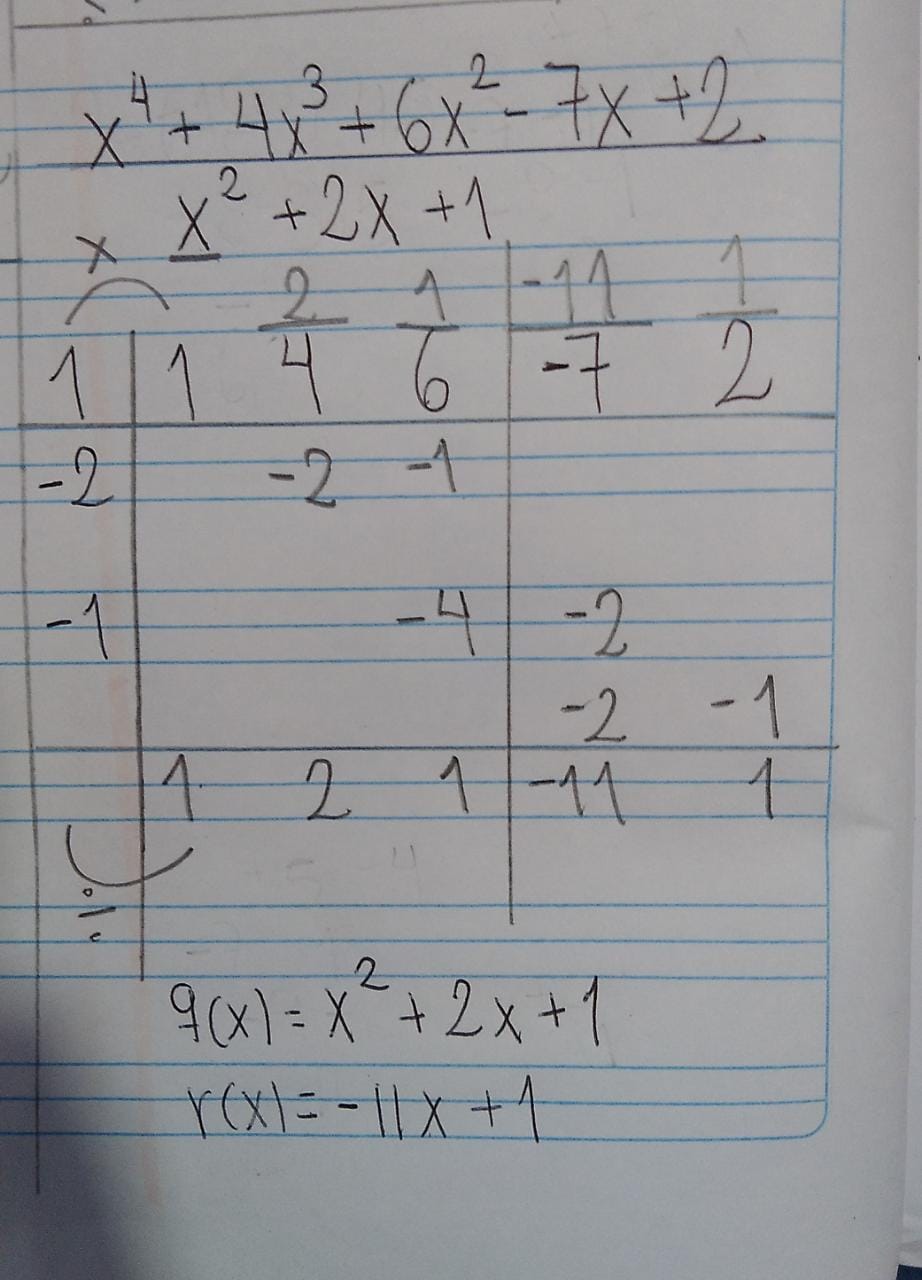 x⁴ + 4x³ + 6x² - 7x + 2
x² + 2x + 1
x
2 1 -11 1
1 1 4 6 -7 2
-2 -2 -1
-1 -4 -2
-2 -1
1 2 1 -11 1
÷
q(x) = x² + 2x + 1
r(x) = -11x + 1